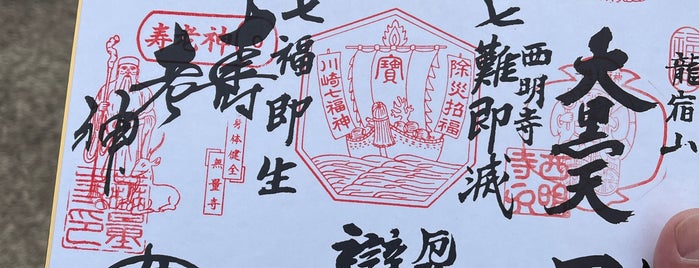 龍宿山
大黒天
西明寺
西明寺印
七難即滅
除災招福
寶
川崎七福神
七福即生
寿老神
壽老神
身体健全
無量寺
辯
厄